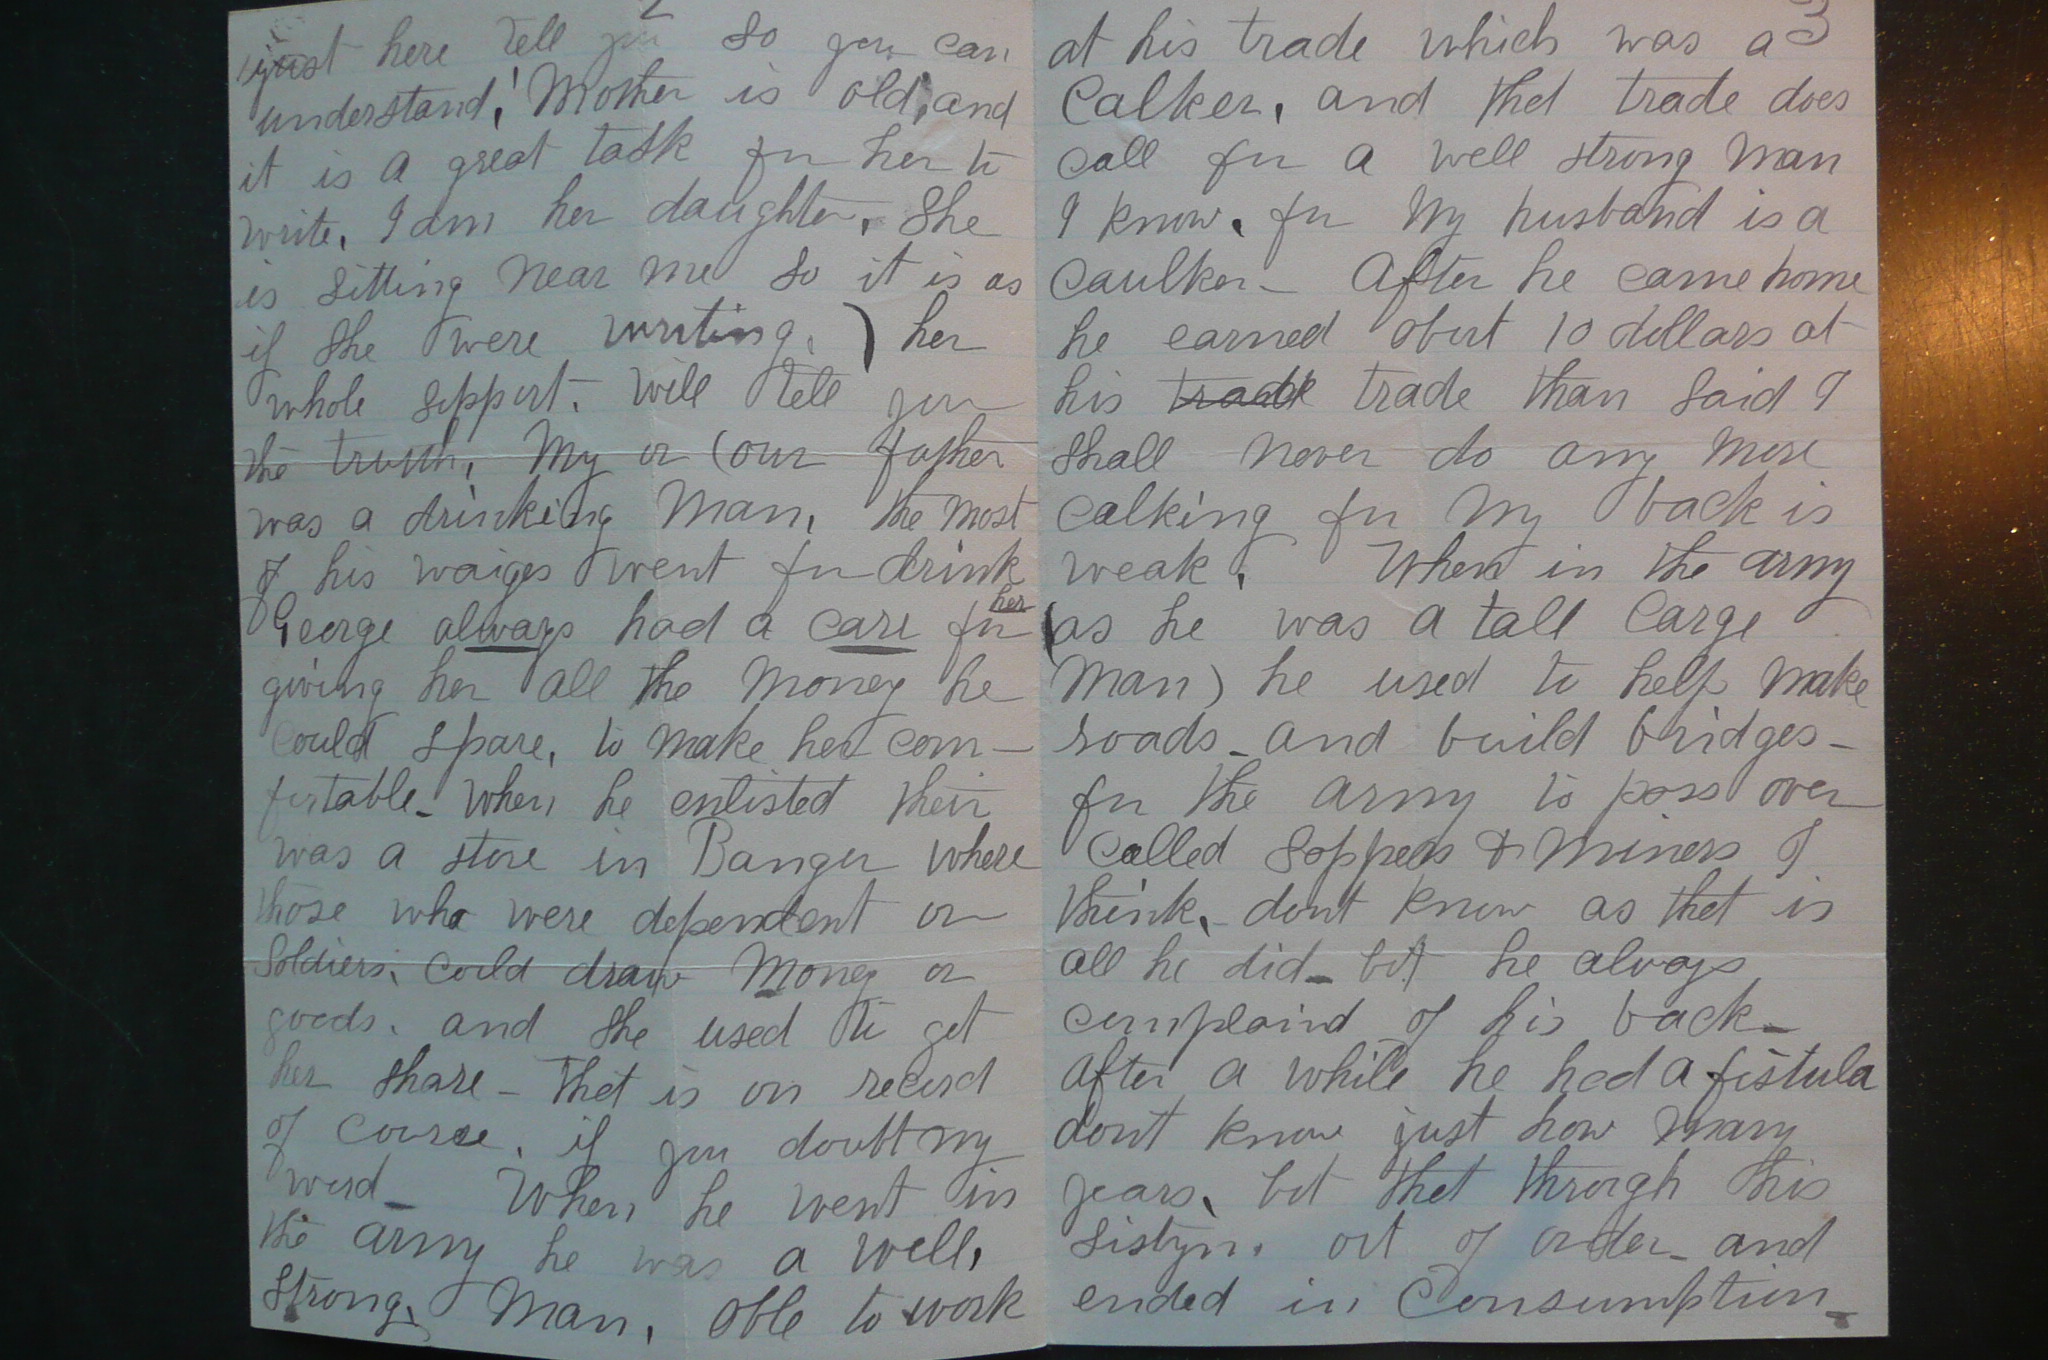 2
just here tell you so you can
understand, Mother is old, and
it is a great task for her to
write, I am her daughter, She
is sitting near me so it is as
if she were writing.) her
whole support. will tell you
the truth, My or (our father
was a drinking man, the most
of his waiges went for drink
George always had a care for her
giving her all the money he
could spare, to make her com-
fortable- when he enlisted their
was a store in Bangor where
those who were dependent on
Soldiers, could draw money or
goods. and she used to get
her share - thet is on record
of course, if you doubt my
word- When he went in
the army he was a well,
strong, man, able to work
3
at his trade which was a
Calker, and thet trade does
call for a well strong man
I know, for my husband is a
caulker- After he came home
he earned obut 10 dollars at
his trade trade than said I
shall never do any more
calking for my back is
weak, When in the army
(as he was a tall large
man) he used to help make
roads- and build bridges-
for the army to pass over
called Soppers & Miners I
think, dont know as thet is
all he did- but he always
complaind of his back-
After a while he had a fistula
dont know just how many
years, but thet through this
Sistyn. out of order- and
ended in Consumption-